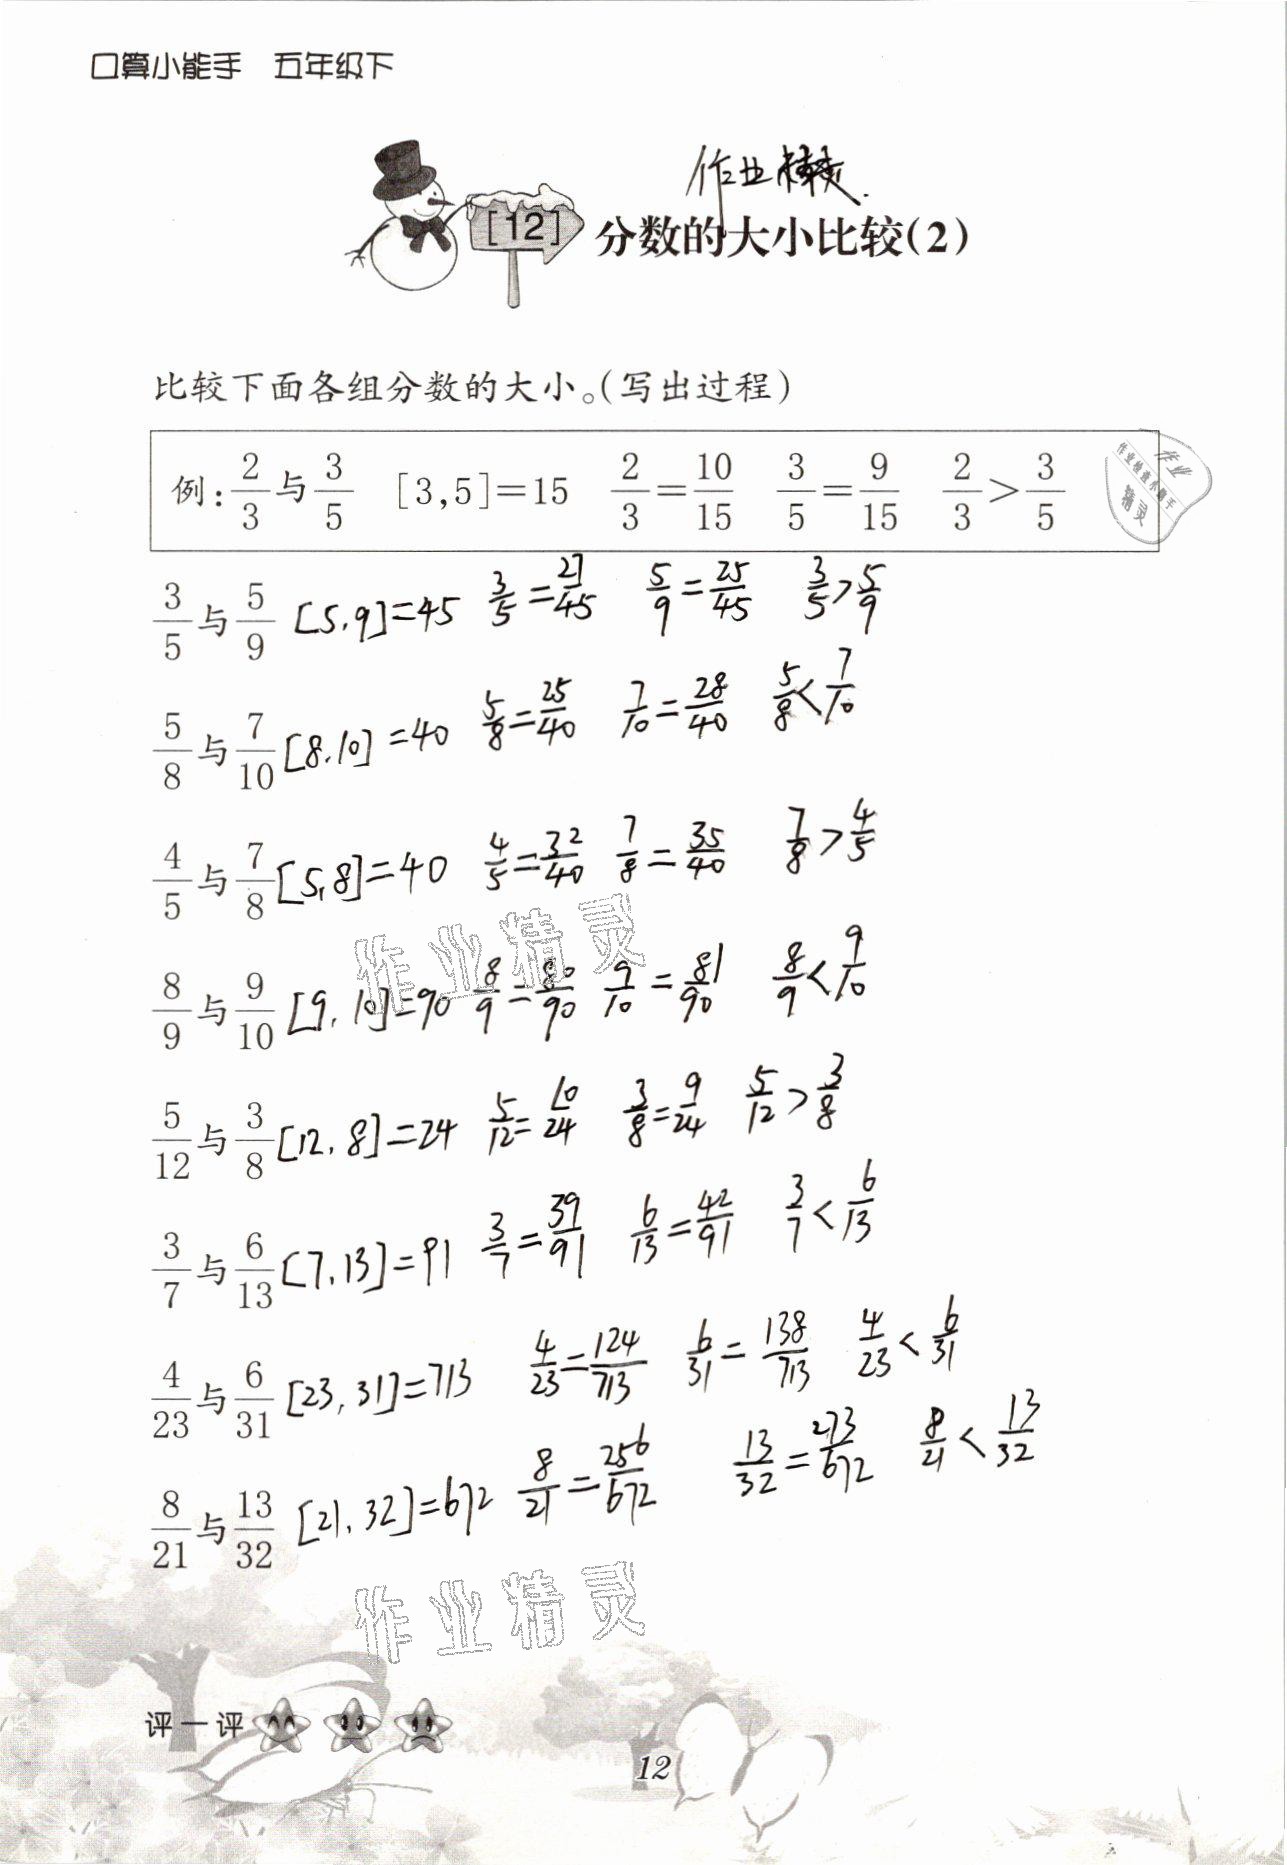 口算小能手 五年级下
作业精灵
[12] 分数的大小比较(2)
比较下面各组分数的大小。(写出过程)
例: 2/3 与 3/5 [3,5]=15 2/3=10/15 3/5=9/15 2/3>3/5
作业
作业检查小助手
精灵
3/5 与 5/9 [5,9]=45 3/5=27/45 5/9=25/45 3/5>5/9
5/8 与 7/10 [8,10]=40 5/8=25/40 7/10=28/40 5/8<7/10
4/5 与 7/8 [5,8]=40 4/5=32/40 7/8=35/40 7/8>4/5
作业精灵
8/9 与 9/10 [9,10]=90 8/9=80/90 9/10=81/90 8/9<9/10
5/12 与 3/8 [12,8]=24 5/12=10/24 3/8=9/24 5/12>3/8
3/7 与 6/13 [7,13]=91 3/7=39/91 6/13=42/91 3/7<6/13
4/23 与 6/31 [23,31]=713 4/23=124/713 6/31=138/713 4/23<6/31
8/21 与 13/32 [21,32]=672 8/21=256/672 13/32=273/672 8/21<13/32
作业精灵
评一评
12